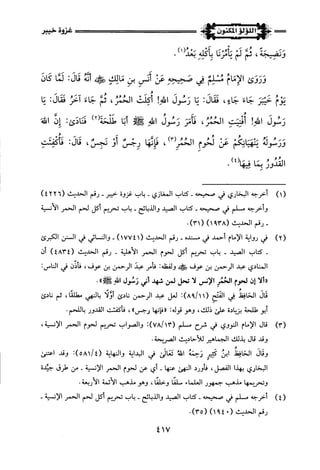 اللؤلؤ المكنون
غزوة خيبر
وَنَضِيجَةً، ثُمَّ لَمْ يَأْمُرْنَا بِأَكْلِهِ بَعْدُ(١).
وَرَوَى الإِمَامُ مُسْلِمٌ فِي صَحِيحِهِ عَنْ أَنَسِ بنِ مَالِكٍ ﷺ أَنَّهُ قَالَ: لَمَّا كَانَ
يَوْمُ خَيْبَرَ جَاءَ جَاءٍ، فَقَالَ: يَا رَسُولَ اللهِ! أُكِلَتِ الْحُمُرُ، ثُمَّ جَاءَ آخَرُ فَقَالَ: يَا
رَسُولَ اللهِ! أُفْنِيَتِ الْحُمُرُ، فَأَمَرَ رَسُولُ اللهِ ﷺ أَبَا طَلْحَةَ(٢) فَنَادَى: إِنَّ اللهَ
وَرَسُولَهُ يَنْهَيَانِكُمْ عَنْ لُحُومِ الْحُمُرِ(٣)، فَإِنَّهَا رِجْسٌ أَوْ نَجِسٌ، قَالَ: فَأُكْفِئَتِ
الْقُدُورُ بِمَا فِيهَا(٤).
(١) أخرجه البخاري في صحيحه - كتاب المغازي - باب غزوة خيبر - رقم الحديث (٤٢٢٦)
وأخرجه مسلم في صحيحه - كتاب الصيد والذبائح - باب تحريم أكل لحم الحمر الأنسية
- رقم الحديث (١٩٣٨) (٣١).
(٢) في رواية الإمام أحمد في مسنده - رقم الحديث (١٧٧٤١) - والنسائي في السنن الكبرى
- كتاب الصيد - باب تحريم أكل لحوم الحمر الأهلية - رقم الحديث (٤٨٣٤) أن
المنادي عبد الرحمن بن عوف ﷺ ولفظه: فأمر عبد الرحمن بن عوف، فأذن في الناس:
«ألا إن لحوم الحمُرِ الإنس لا تحل لمن شهد أني رَسُول الله ﷺ».
قَالَ الحَافِظُ فِي الفَتْحِ (٨٩/١١): لعل عبد الرحمن نادى أوَّلًا بالنهي مطلقًا، ثم نادى
أبو طلحة بزيادة على ذلك، وهو قوله: «فإنها رجس»، فأكفئت القدور باللحم.
(٣) قَالَ الإمام النووي في شرح مسلم (٧٨/١٣): والصواب تحريم لحوم الحمر الأنسية،
وقد قال بذلك الجماهير للأحاديث الصريحة.
وقَالَ الحَافِظُ ابنُ كَثِيرٍ رَحِمَهُ اللهُ تَعَالَى فِي البداية والنهاية (٥٨١/٤): وقد اعتنى
البخاري بهذا الفصل، فأورد النهي عنها - أي عن لحوم الحمر الإنسية - من طرق جيِّدة
وتحريمها مذهب جمهور العلماء سلفًا وخلفًا، وهو مذهب الأئمة الأربعة.
(٤) أخرجه مسلم في صحيحه - كتاب الصيد والذبائح - باب تحريم أكل لحم الحمر الإنسية -
رقم الحديث (١٩٤٠) (٣٥).
٤١٧